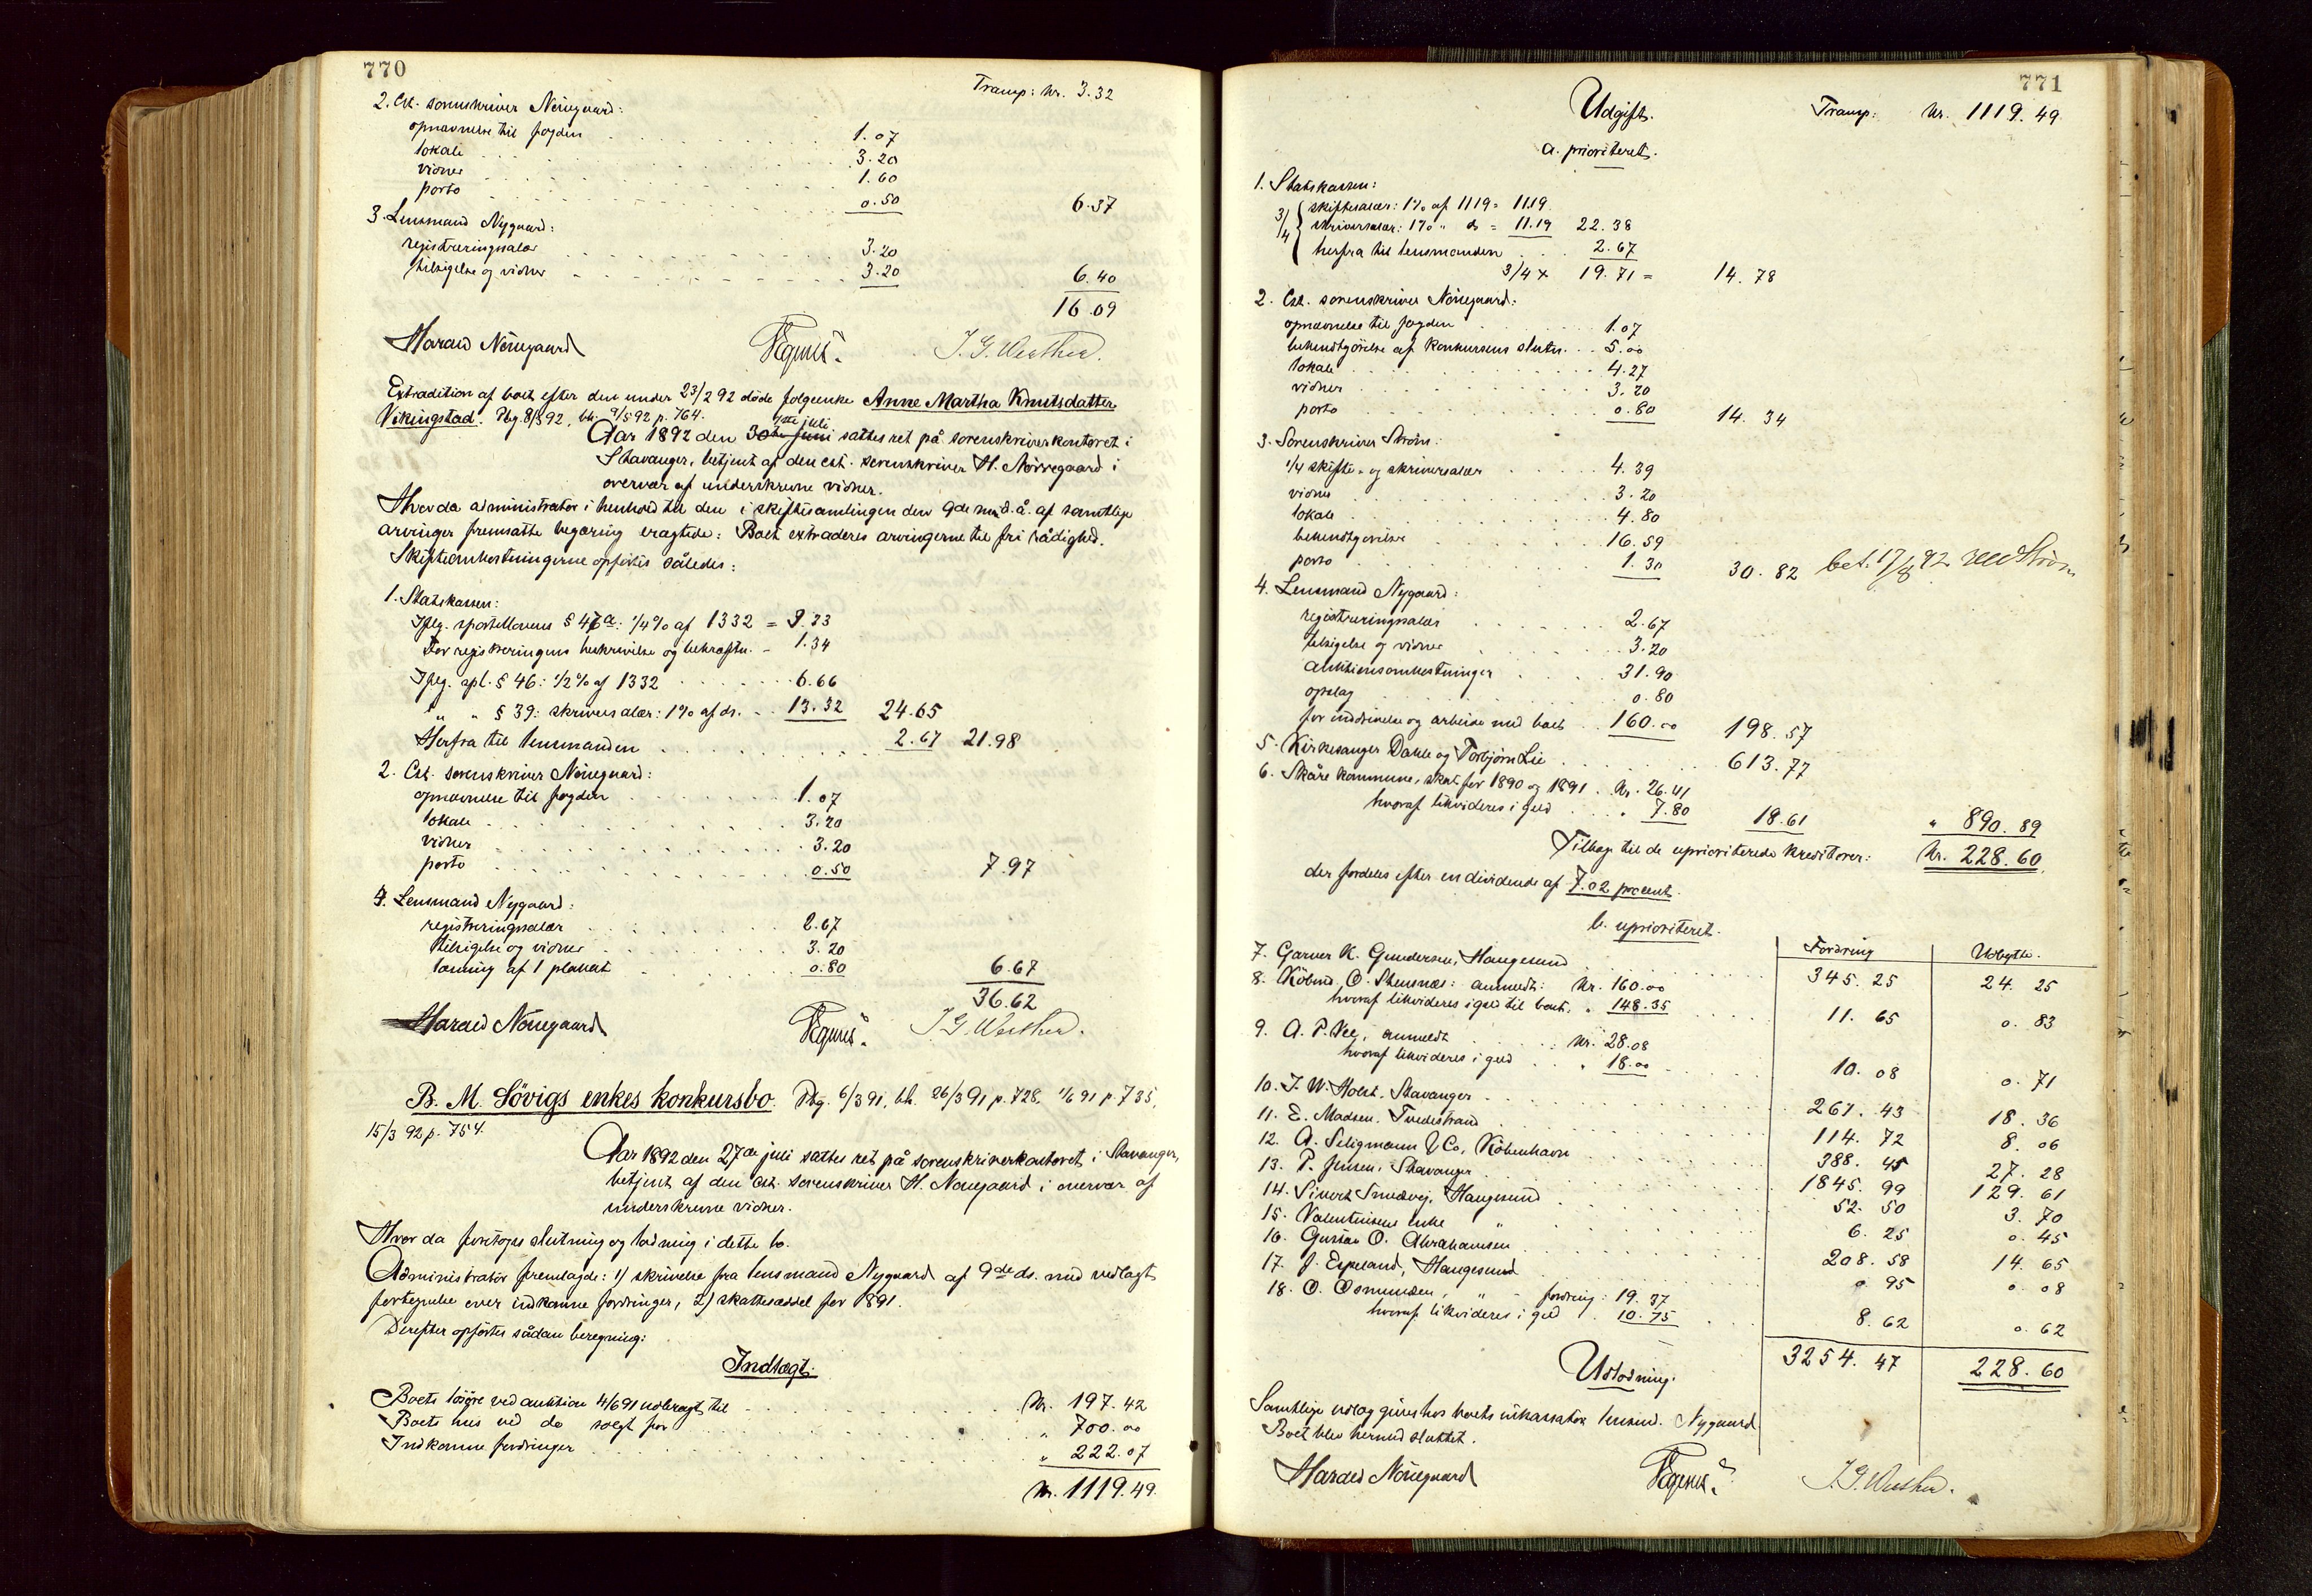 770
Transp: kr. 3.32
2. Cst. sorenskriver Nörregaard:
opnævnelse til fogden 1.07
lokale 3.20
vidner 1.60
porto 0.50 6.37
3. Lensmand Nygaard:
registreringsalær 3.20
tilsigelse og vidner 3.20 6.40
16.09
Harald Nörregaard J. G. Werther.
Extradition af boet efter den under 23/2 92 döde folgeenke Anne Martha Knutsdatter
Vikingstad. Pbg. 8/3 92, bh. 9/5 92 p. 764.
1ste juli
Aar 1892 den 30te juni sattes ret på sorenskriverkontoret i
Stavanger, betjent af den cst. sorenskriver H. Nörregaard i
overvær af underskrevne vidner.
Hvor da administrator i henhold til den i skiftesamlingen den 9de mai d. å. af samtlige
arvinger fremsatte begæring eragtede: Boet extraderes arvingerne til fri rådighed.
Skifteomkostningerne opförtes således:
1. Statskassen:
Iflg. sportellovens § 47 a: 1/4 % af 1332 = 3.33
For registreringens beskrivelse og bekræfte. - 1.34
Iflg. spl. § 46: 1/2 % af 1332 6.66
" " § 39: skriversalær: 1% af do. 13.32 24.65
Herfra til lensmanden 2.67 21.98
2. Cst. sorenskriver Nörregaard:
opnævnelse til fogden 1.07
lokale 3.20
vidner 3.20
porto 0.50 7.97
3. Lensmand Nygaard:
registreringsalær 2.67
tilsigelse og vidner 3.20
læsning af 1 plakat 0.80 6.67
36.62
Harald Nörregaard J. G. Werther.
B. M. Sövigs enkes konkursbo. Pbg. 6/3 91, bh. 26/3 91 p. 728, 1/6 91 p. 735,
15/3 92 p. 754.
Aar 1892 den 27de juli sattes ret på sorenskriverkontoret i Stavanger,
betjent af den cst. sorenskriver H. Nörregaard i overvær af
underskrevne vidner.
Hvor da foretoges slutning og lodning i dette bo.
Administrator fremlagde: 1) skrivelse fra lensmand Nygaard af 9de ds. med vedlagt
fortegnelse over indkomne fordringer, 2) skattesæddel for 1891.
Derefter opförtes sådan beregning:
Indtægt:
Boets lösöre ved auktion 4/6 91 udbragt til kr. 197.42
Boets hus ved do solgt for " 700.00
Indkomne fordringer " 222.07
kr. 1119.49.
771
Udgift. Transp: kr. 1119.49
a. prioriteret.
1. Statskassen:
3/4 { skiftesalær: 1% af 1119 = 11.19
skriversalær: 1% " do = 11.19 22.38
herfra til lensmanden 2.67
3/4 x 19.71 = 14.78
2. Cst. sorenskriver Nörregaard:
opnævnelse til fogden 1.07
bekendtgörelse af konkursens slutn. 5.00
lokale 4.27
vidner 3.20
porto 0.80 14.34
3. Sorenskriver Ström:
1/4 skifte- og skriversalær 4.39
vidner 3.20
lokale 4.80
bekendtgörelse 16.59
porto 1.30 30.82 bet. 17/8 92 Ström
4. Lensmand Nygaard:
registreringsalær 2.67
tilsigelse og vidner 3.20
auktionsomkostninger 31.90
opslag 0.80
for inddrivelse og arbeide med boet 160.00 198.57
5. Kirkesanger Dahle og Torbjörn Lie 613.77
6. Skåre kommune, skat for 1890 og 1891 kr. 26.41
hvoraf likvideres i gield " 7.80 18.61 " 890.89
Tilbage til de uprioriterede kreditorer: kr. 228.60
der fordeles efter en dividende af 7.02 procent.
b. uprioriteret.
Fordring Udbytte.
7. Garver K. Gundersen, Haugesund 345.25 24.25
8. Köbmd. O. Stensnæs: anmeldt: kr. 160.00
hvoraf likvideres igield til boet. " 148.35 11.65 0.83
9. A. P. Vee, anmeldt kr. 28.08
hvoraf likvideres i gield " 18.00 10.08 0.71
10. J. W. Holst, Stavanger 261.43 18.36
11. E. Madsen, Tvedestrand 114.72 8.06
12. A. Seligmann & Co, Köbenhavn 388.45 27.28
13. P. Jensen, Stavanger 1845.99 129.61
14. Sivert Smedvig, Haugesund 52.50 3.70
15. Valentinsens enke " 6.25 0.45
16. Gustav O. Abrahamsen 208.58 14.65
17. J. Espeland, Haugesund 0.95 0.08
18. O. Osmundsen, " fordring: 19.37
hvoraf likvideres i gield 10.75 8.62 0.62
3254.47 228.60
Udlodning.
Samtlige udlæg gives hos boets inkassator lensmd. Nygaard
Boet blev hermed sluttet.
Harald Nörregaard J. G. Werther.